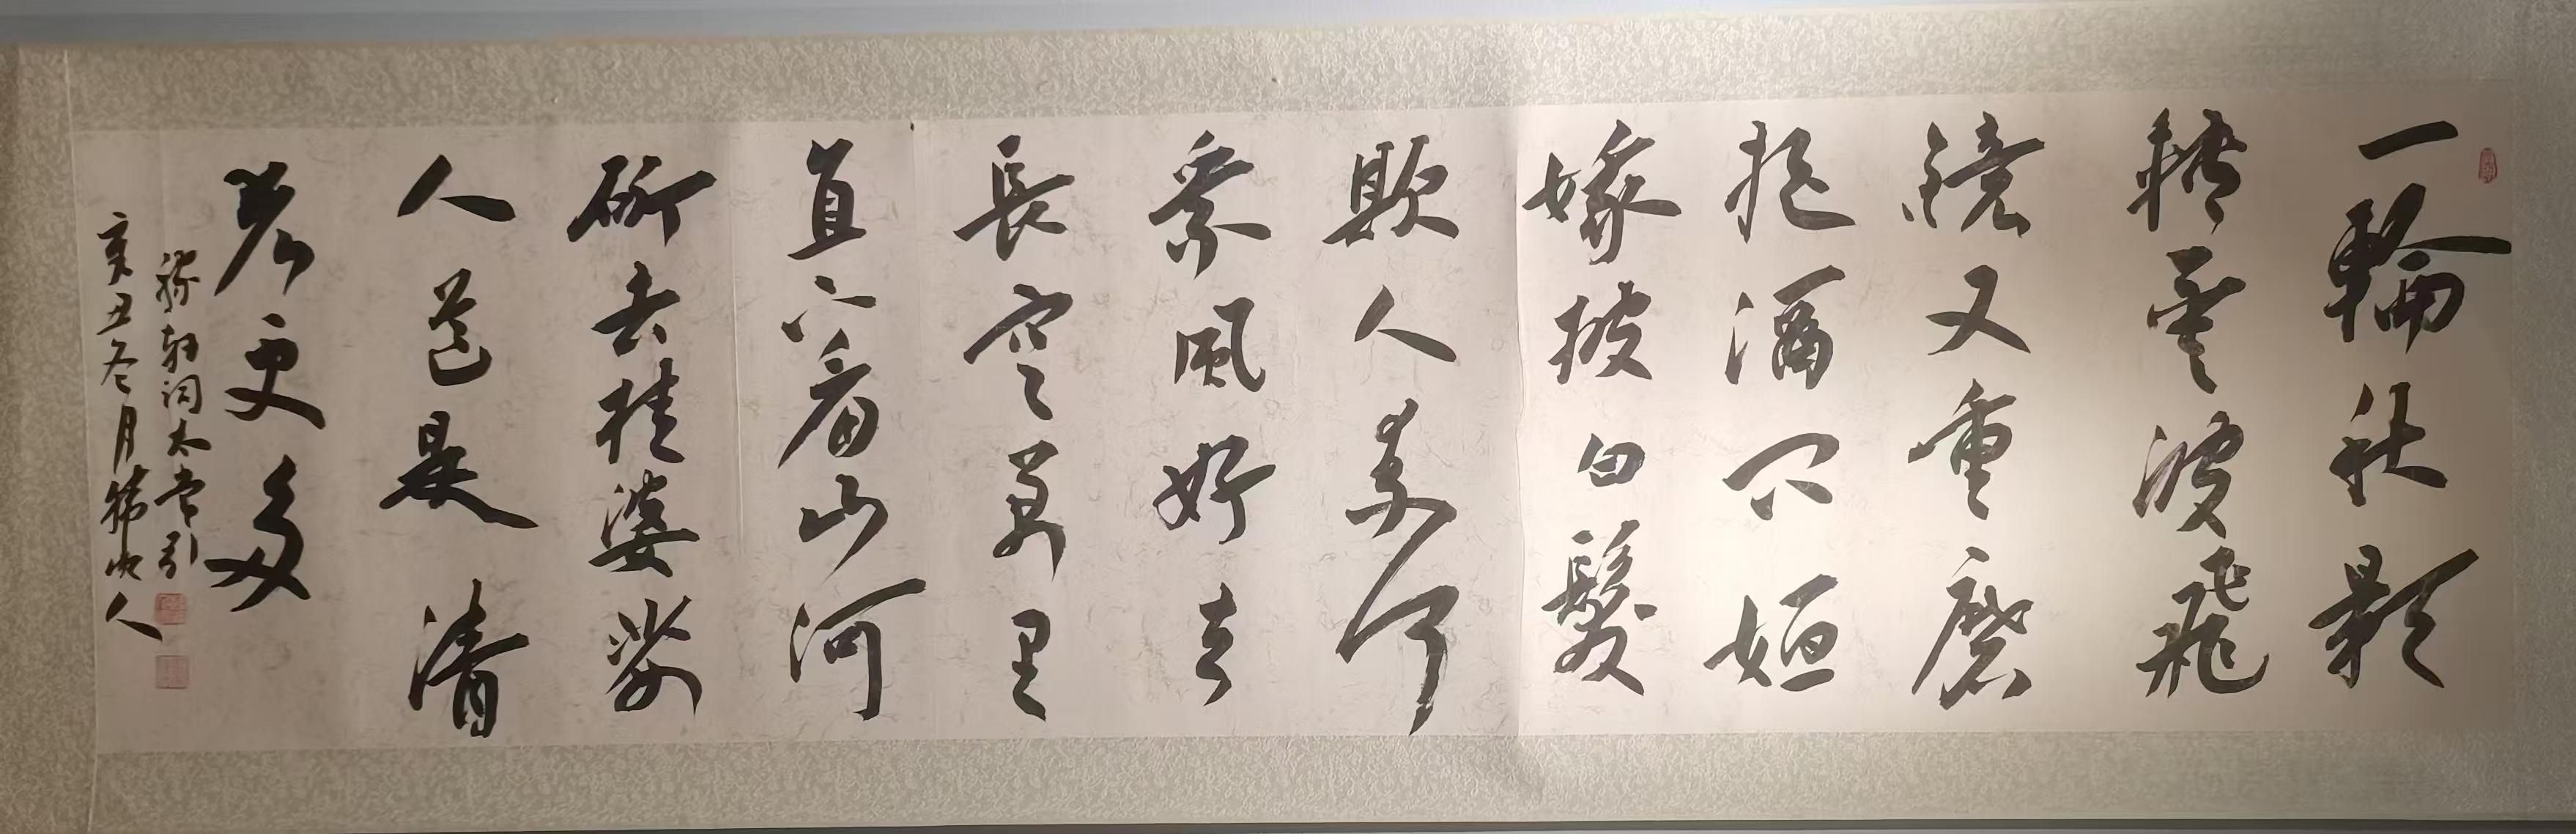 一輪秋影
轉金波飛
鏡又重磨
把酒問姮
娥被白髮
欺人奈何
乘風好去
長空萬里
直下看山河
斫去桂婆娑
人道是清
光更多
稼軒詞太常引
辛丑冬月人